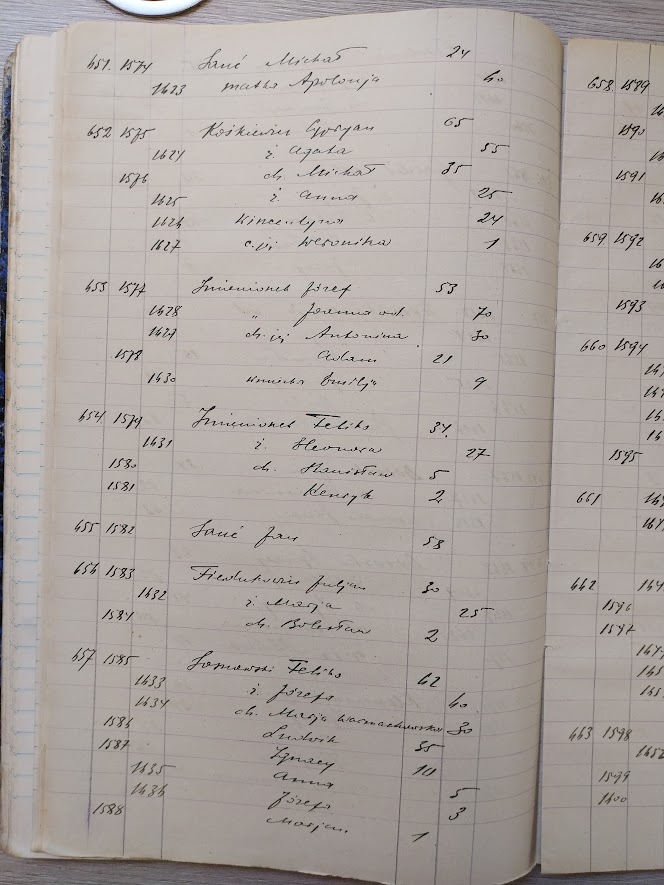 651. 1574 Sanć Michał 24
1623 matka Apolonja 60
652 1575 Kośkiewicz Cypryan 65
1624 ż. Agata 55
1576 ch. Michał 35
1625 ż. Anna 25
1626 Wincentyna 24
1627 c. jej Weronika 1
653 1577 Imienionek Józef 53
1628 " Joanna wd. 70
1629 ch. jej Antonina 30
1578 Adam 21
1630 wnuczka Emilja 9
654 1579 Imienionek Feliks 34.
1631 ż. Eleonora 27
1580 ch. Stanisław 5
1581 Henryk 2
655 1582 Sanć Jan 58
656 1583 Fiedukowicz Juljan 30
1632 ż. Marja 25
1584 ch. Bolesław 2
657 1585 Somowski Feliks 62
1633 ż. Józefa 60
1634 ch. Marja 30
1586 Ludwik 35
1587 Ignacy 10
1635 Anna 5
1636 Józefa 3
1588 Marjan 1
658 1589
1590
1591
659 1592
1593
660 1594
1595
661
662
1596
1597
663 1598
1652
1599
1600